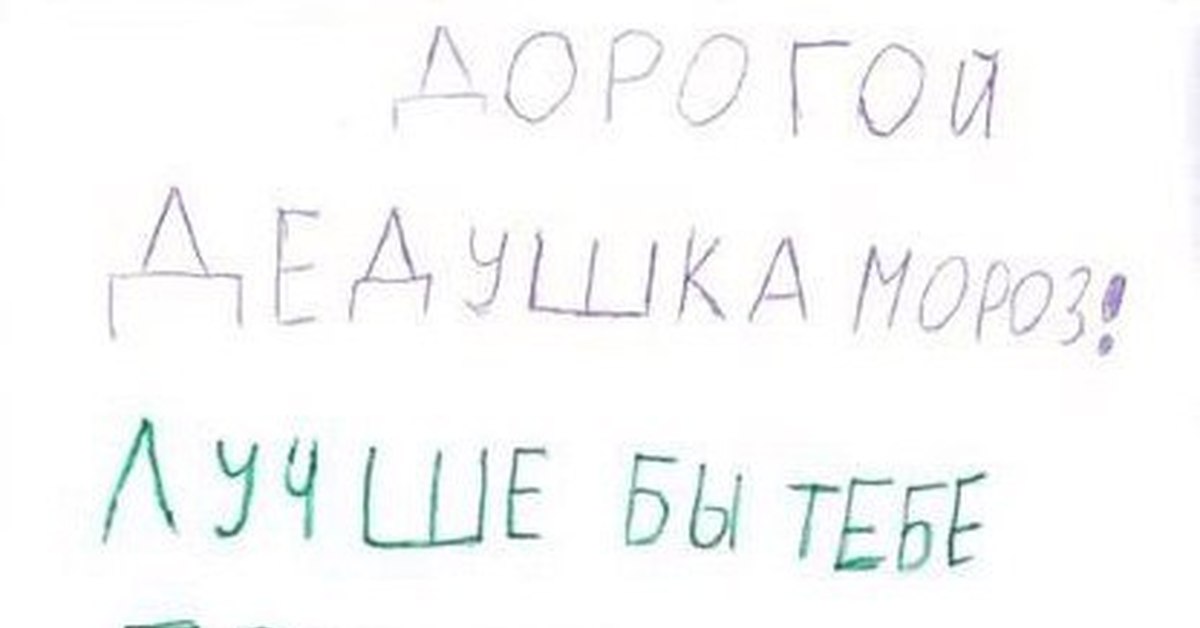 ДОРОГОЙ
ДЕДУШКА МОРОЗ!
ЛУЧШЕ БЫ ТЕБЕ